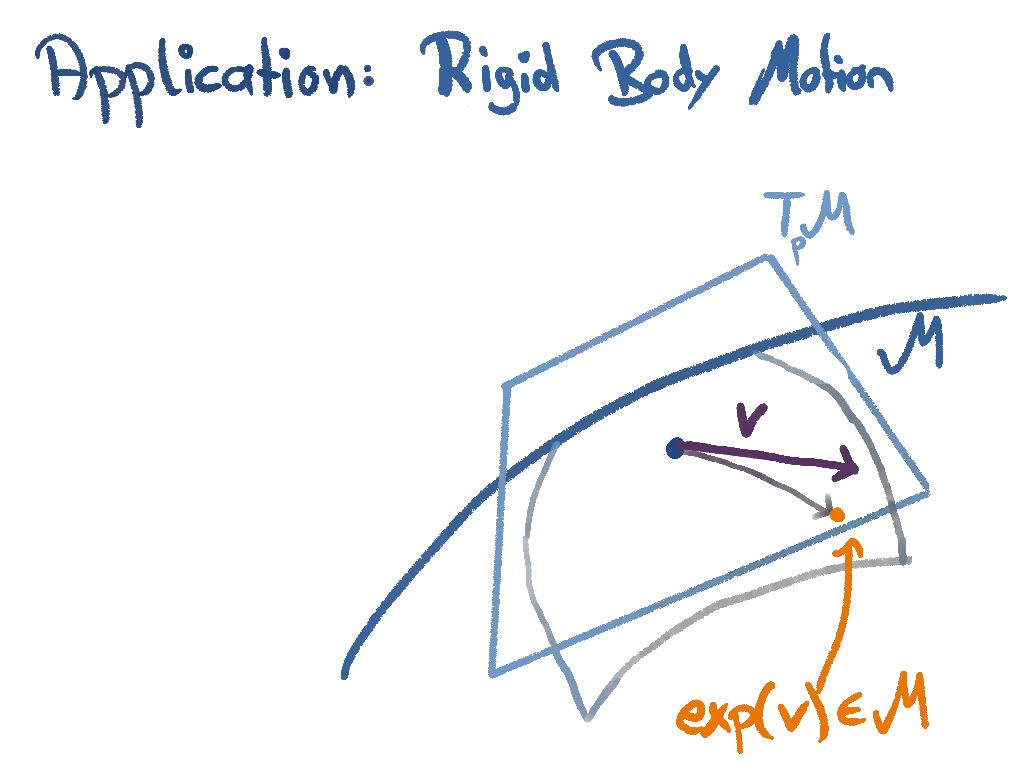 Application: Rigid Body Motion
TₚM
M
v
exp(v) ∈ M